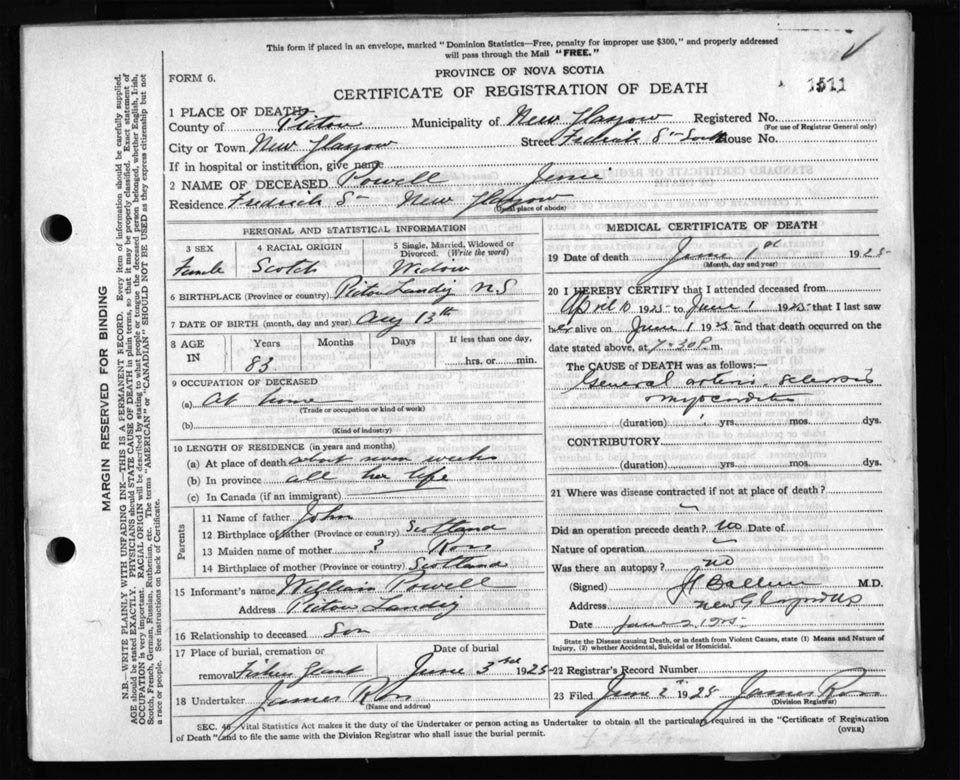 This form if placed in an envelope, marked "Dominion Statistics—Free, penalty for improper use $300," and properly addressed
will pass through the Mail "FREE."
FORM 6.
PROVINCE OF NOVA SCOTIA
CERTIFICATE OF REGISTRATION OF DEATH
1511
1 PLACE OF DEATH
County of Pictou Municipality of New Glasgow Registered No.
(For use of Registrar General only)
City or Town New Glasgow Street Fredrich St South House No.
If in hospital or institution, give name
2 NAME OF DECEASED Powell Jessie
Residence Fredrich St New Glasgow
(Usual place of abode)
PERSONAL AND STATISTICAL INFORMATION
3 SEX 4 RACIAL ORIGIN 5 Single, Married, Widowed or
Divorced. (Write the word)
Female Scotch Widow
6 BIRTHPLACE (Province or country) Pictou Landing N.S
7 DATE OF BIRTH (month, day and year) Aug 13th
8 AGE IN Years Months Days If less than one day,
83 hrs. or min.
9 OCCUPATION OF DECEASED
(a) At home
(Trade or occupation or kind of work)
(b)
(Kind of industry)
10 LENGTH OF RESIDENCE (in years and months)
(a) At place of death about seven weeks
(b) In province all her life
(c) In Canada (if an immigrant)
Parents
11 Name of father John
12 Birthplace of father (Province or country) Scotland
13 Maiden name of mother ? Ross
14 Birthplace of mother (Province or country) Scotland
15 Informant's name William Powell
Address Pictou Landing
16 Relationship to deceased Son
17 Place of burial, cremation or removal Date of burial
Fishers Grant June 3rd 1925
18 Undertaker James Ross
(Name and address)
MEDICAL CERTIFICATE OF DEATH
19 Date of death June 1st 1925
(Month, day and year)
20 I HEREBY CERTIFY that I attended deceased from
April 10 1925 to June 1 1925 that I last saw
her alive on June 1 1925 and that death occurred on the
date stated above, at 7-30 P. m.
The CAUSE OF DEATH was as follows:—
General arterio-sclerosis
myocarditis
(duration) yrs. mos. dys.
CONTRIBUTORY
(duration) yrs. mos. dys.
21 Where was disease contracted if not at place of death?
Did an operation precede death? no Date of
Nature of operation
Was there an autopsy? no
(Signed) M.D.
Address New Glasgow N.S.
Date June 2 1925
State the Disease causing Death, or in death from Violent Causes, state (1) Means and Nature of
Injury, (2) whether Accidental, Suicidal or Homicidal.
22 Registrar's Record Number
23 Filed June 2nd 1925 James Ross
(Division Registrar)
SEC. 46 Vital Statistics Act makes it the duty of the Undertaker or person acting as Undertaker to obtain all the particulars required in the "Certificate of Registration
of Death" and to file the same with the Division Registrar who shall issue the burial permit. (OVER)
MARGIN RESERVED FOR BINDING
N.B.—WRITE PLAINLY WITH UNFADING INK—THIS IS A PERMANENT RECORD. Every item of information should be carefully supplied.
AGE should be stated EXACTLY. PHYSICIANS should STATE CAUSE OF DEATH in plain terms, so that it may be properly classified. Exact statement of
OCCUPATION is very important. RACIAL ORIGIN will be described by stating to what people or tongue the deceased person belonged, whether English, Irish,
Scotch, French, German, Russian, Ruthenian, etc. The terms "AMERICAN" or "CANADIAN" SHOULD NOT BE USED as they express citizenship but not
a race or people. See instructions on back of Certificate.